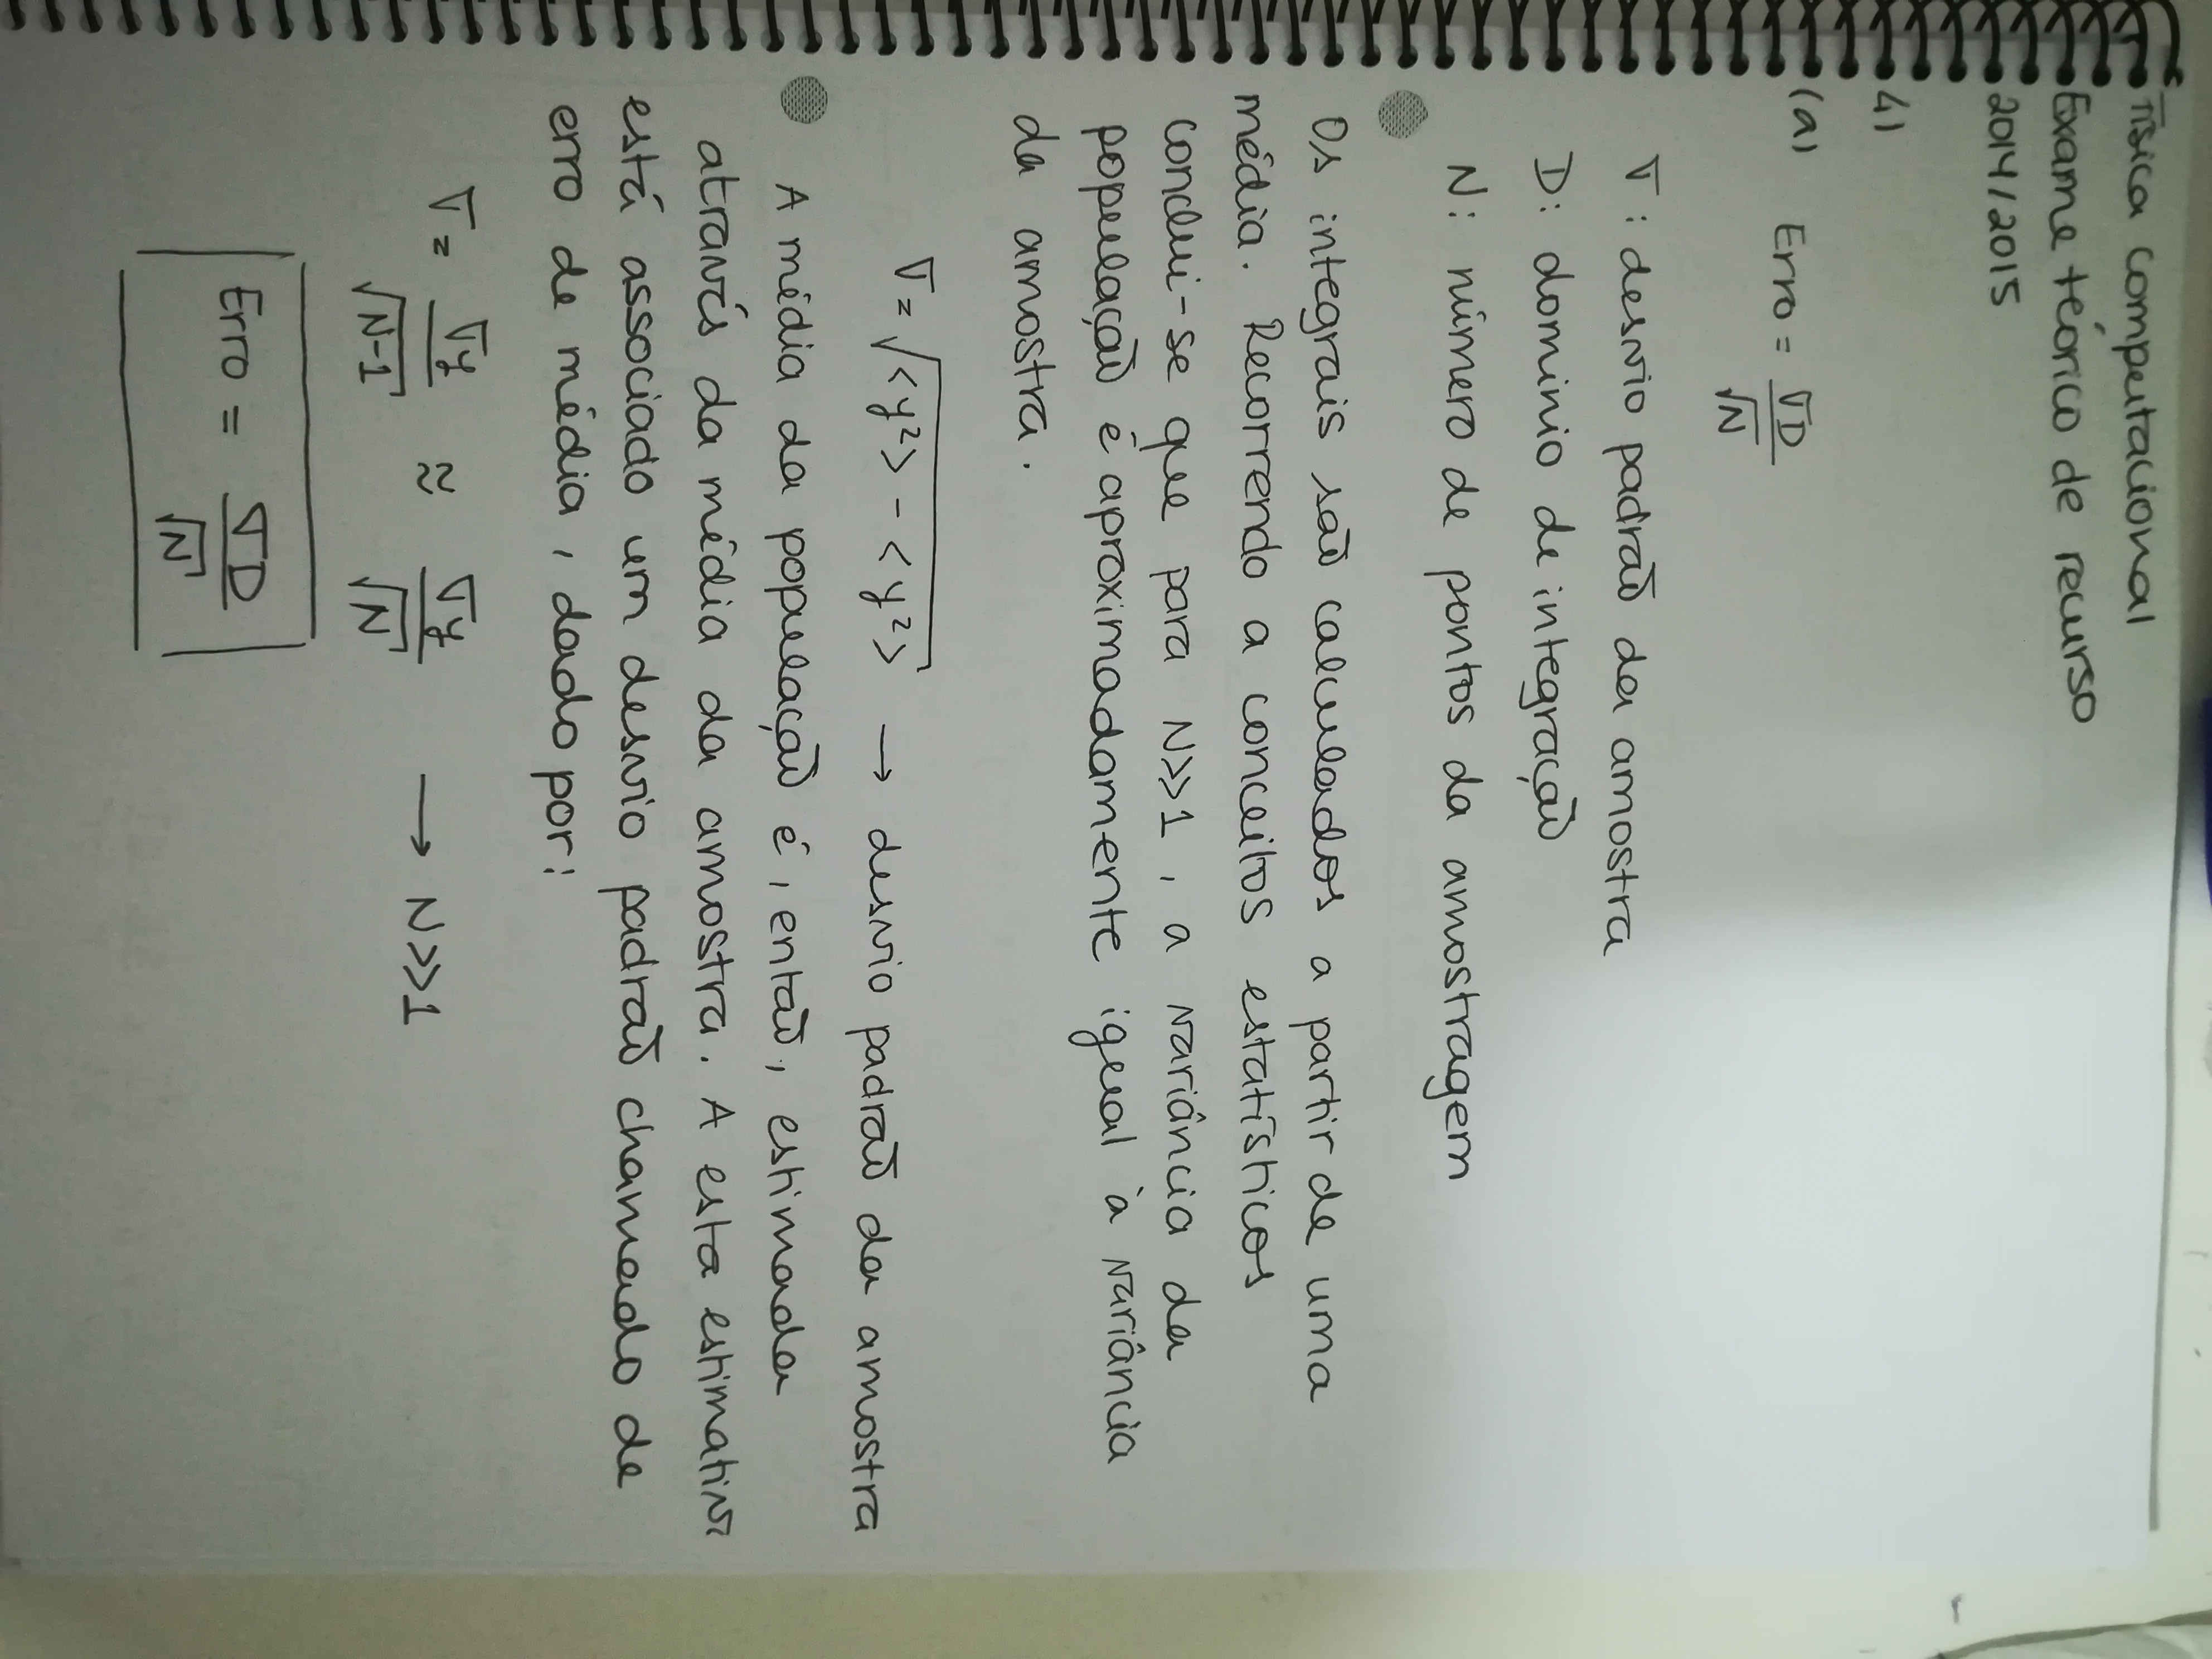 Física computacional
Exame teórico de recurso
2014/2015
4)
(a) Erro = σD/√N
σ: desvio padrão da amostra
D: domínio de integração
N: número de pontos da amostragem
Os integrais são calculados a partir de uma
média. Recorrendo a conceitos estatísticos
conclui-se que para N>>1, a variância da
população é aproximadamente igual à variância
da amostra.
σ = √(<y²> - <y²>) → desvio padrão da amostra
A média da população é, então, estimada
através da média da amostra. A esta estimativa
está associado um desvio padrão chamado de
erro de média, dado por:
σ = σy/√(N-1) ≈ σy/√N → N>>1
Erro = σD/√N